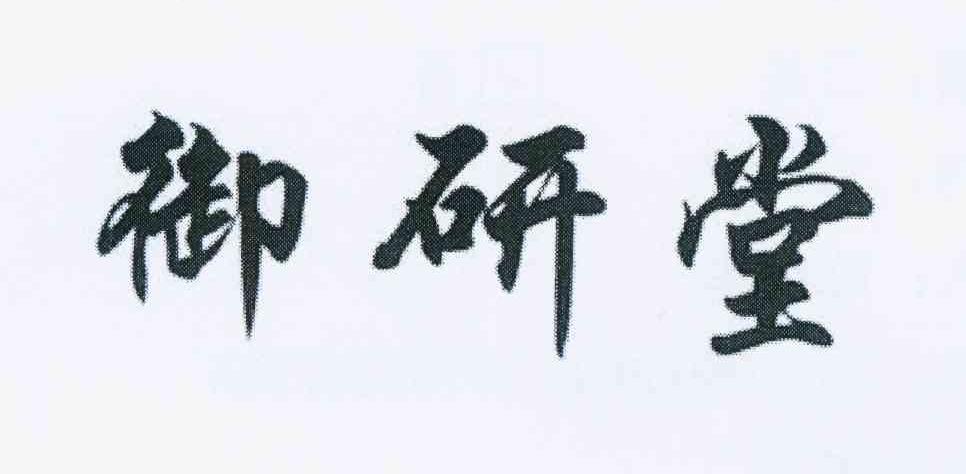 御研堂